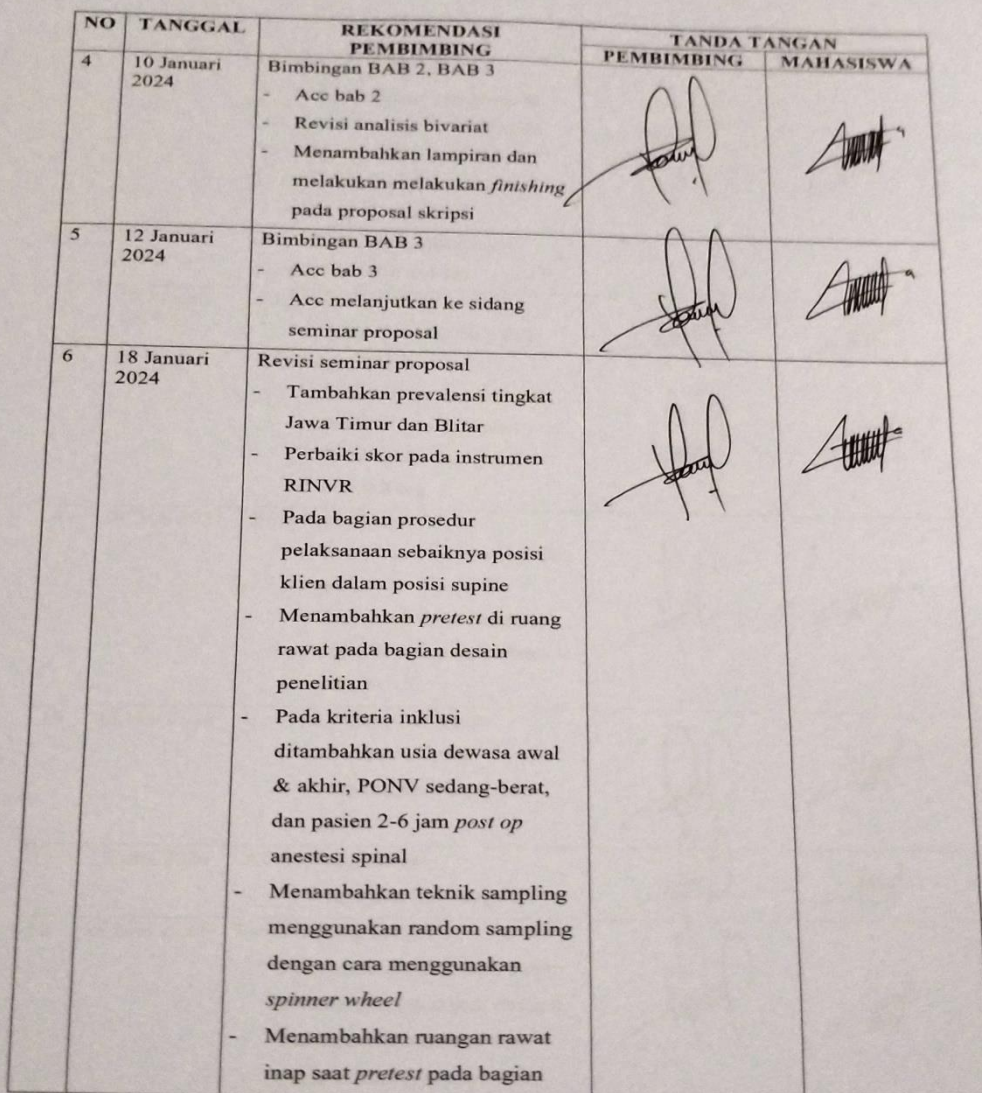 NO TANGGAL REKOMENDASI PEMBIMBING TANDA TANGAN
PEMBIMBING MAHASISWA
4 10 Januari 2024
Bimbingan BAB 2, BAB 3
- Acc bab 2
- Revisi analisis bivariat
- Menambahkan lampiran dan
melakukan melakukan finishing
pada proposal skripsi
5 12 Januari 2024
Bimbingan BAB 3
- Acc bab 3
- Acc melanjutkan ke sidang
seminar proposal
6 18 Januari 2024
Revisi seminar proposal
- Tambahkan prevalensi tingkat
Jawa Timur dan Blitar
- Perbaiki skor pada instrumen
RINVR
- Pada bagian prosedur
pelaksanaan sebaiknya posisi
klien dalam posisi supine
- Menambahkan pretest di ruang
rawat pada bagian desain
penelitian
- Pada kriteria inklusi
ditambahkan usia dewasa awal
& akhir, PONV sedang-berat,
dan pasien 2-6 jam post op
anestesi spinal
- Menambahkan teknik sampling
menggunakan random sampling
dengan cara menggunakan
spinner wheel
- Menambahkan ruangan rawat
inap saat pretest pada bagian